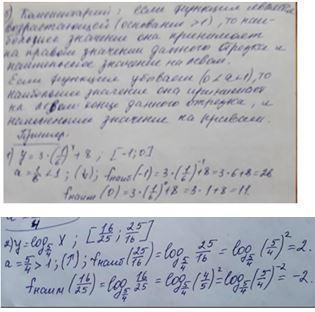 Коментарий: если функция является
возрастающей (основания >1), то наи-
большее значение она принимает
на правом значении данного отрезка и
наименьшее значение на левом.
Если функция убывает (0<a<1), то
наибольшее значение она принимает
на левом конце данного отрезка, и
наименьшее значение на правом.
Пример.
1) y = 3·(1/6)ˣ + 8 ; [-1;0]
a = 1/6 < 1 ; (↓) ; fнаиб(-1) = 3·(1/6)⁻¹ + 8 = 3·6+8 = 26
fнаим(0) = 3·(1/6)⁰ + 8 = 3·1+8 = 11.
2) y = log₅/₄ x ; [16/25 ; 25/16]
a = 5/4 > 1 ; (↑) ; fнаиб(25/16) = log₅/₄ 25/16 = log₅/₄ (5/4)² = 2.
fнаим(16/25) = log₅/₄ 16/25 = log₅/₄ (4/5)² = log₅/₄ (5/4)⁻² = -2.